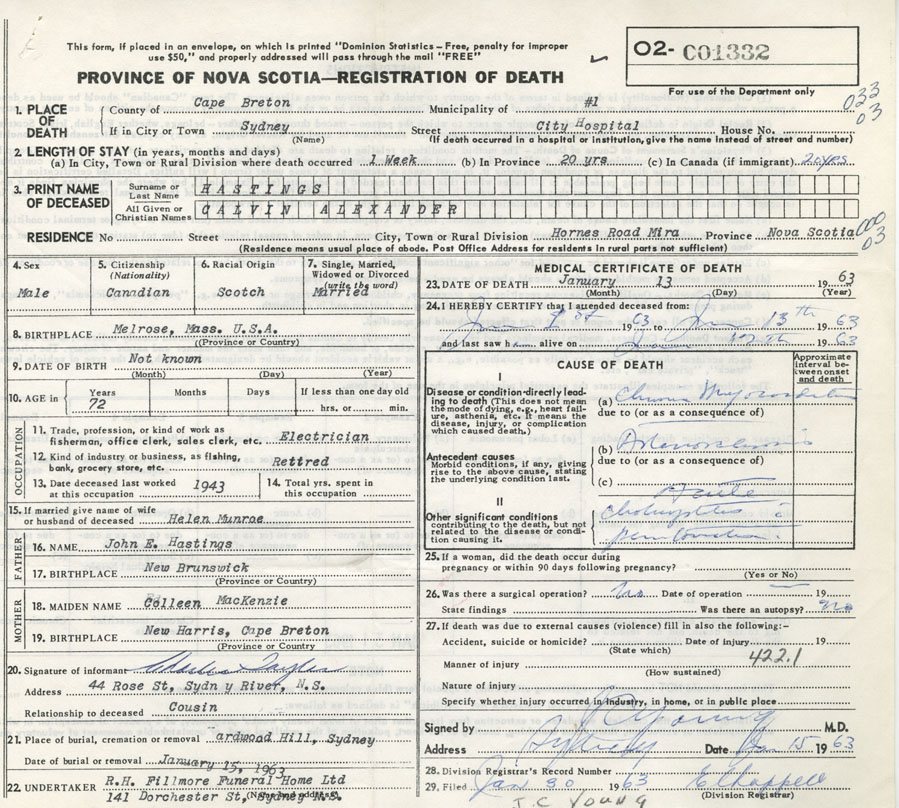 This form, if placed in an envelope, on which is printed "Dominion Statistics – Free, penalty for improper
use $50," and properly addressed will pass through the mail "FREE"
PROVINCE OF NOVA SCOTIA—REGISTRATION OF DEATH
02- C01332
For use of the Department only
033
03
1. PLACE OF DEATH
County of Cape Breton Municipality of #1
If in City or Town Sydney Street City Hospital House No.
(Name) (If death occurred in a hospital or institution, give the name instead of street and number)
2. LENGTH OF STAY (in years, months and days)
(a) In City, Town or Rural Division where death occurred 1 Week (b) In Province 20 yrs (c) In Canada (if immigrant) 20yrs
3. PRINT NAME OF DECEASED
Surname or Last Name HASTINGS
All Given or Christian Names CALVIN ALEXANDER
RESIDENCE No Street City, Town or Rural Division Hornes Road Mira Province Nova Scotia
000
03
(Residence means usual place of abode. Post Office Address for residents in rural parts not sufficient)
4. Sex
Male
5. Citizenship
(Nationality)
Canadian
6. Racial Origin
Scotch
7. Single, Married, Widowed or Divorced
(write the word)
Married
8. BIRTHPLACE Melrose, Mass. U.S.A.
(Province or Country)
9. DATE OF BIRTH Not known
(Month) (Day) (Year)
10. AGE in
Years Months Days If less than one day old
72 hrs. or min.
OCCUPATION
11. Trade, profession, or kind of work as
fisherman, office clerk, sales clerk, etc. Electrician
12. Kind of industry or business, as fishing,
bank, grocery store, etc. Rettred
13. Date deceased last worked
at this occupation 1943
14. Total yrs. spent in
this occupation
15. If married give name of wife
or husband of deceased Helen Munroe
FATHER
16. NAME John E. Hastings
17. BIRTHPLACE New Brunswick
(Province or Country)
MOTHER
18. MAIDEN NAME Colleen MacKenzie
19. BIRTHPLACE New Harris, Cape Breton
(Province or Country)
20. Signature of informant
Address 44 Rose St, Sydn y River, N.S.
Relationship to deceased Cousin
21. Place of burial, cremation or removal ardwood Hill, Sydney
Date of burial or removal January 15, 1963
22. UNDERTAKER R.H. Fillmore Funeral Home Ltd
141 Dorchester St, Sydney N.S.
(Name and address)
MEDICAL CERTIFICATE OF DEATH
23. DATE OF DEATH January 13 1963
(Month) (Day) (Year)
24. I HEREBY CERTIFY that I attended deceased from:
1st 1963 to 13th 1963
and last saw h alive on 1963
CAUSE OF DEATH
Approximate interval between onset and death
I
Disease or condition directly leading to death (This does not mean the mode of dying, e.g., heart failure, asthenia, etc. It means the disease, injury, or complication which caused death.)
(a) Chronic Myocarditis
due to (or as a consequence of)
Antecedent causes
Morbid conditions, if any, giving rise to the above cause, stating the underlying condition last.
(b) Arteriosclerosis
due to (or as a consequence of)
(c)
II
Other significant conditions
contributing to the death, but not related to the disease or condition causing it.
Acute
25. If a woman, did the death occur during
pregnancy or within 90 days following pregnancy?
(Yes or No)
26. Was there a surgical operation? No Date of operation 19
State findings Was there an autopsy? No
27. If death was due to external causes (violence) fill in also the following:–
Accident, suicide or homicide? Date of injury 19
(State which)
Manner of injury 422.1
(How sustained)
Nature of injury
Specify whether injury occurred in industry, in home, or in public place
Signed by Young M.D.
Address Sydney Date Jan 15 1963
28. Division Registrar's Record Number
29. Filed Jan 30 1963 E Chappell
(Division Registrar)
J.C YOUNG